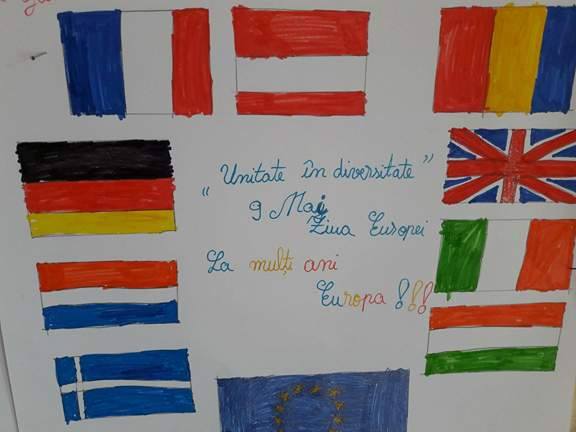 „Unitate în diversitate”
9 Mai
Ziua Europei
La mulți ani
Europa !!!